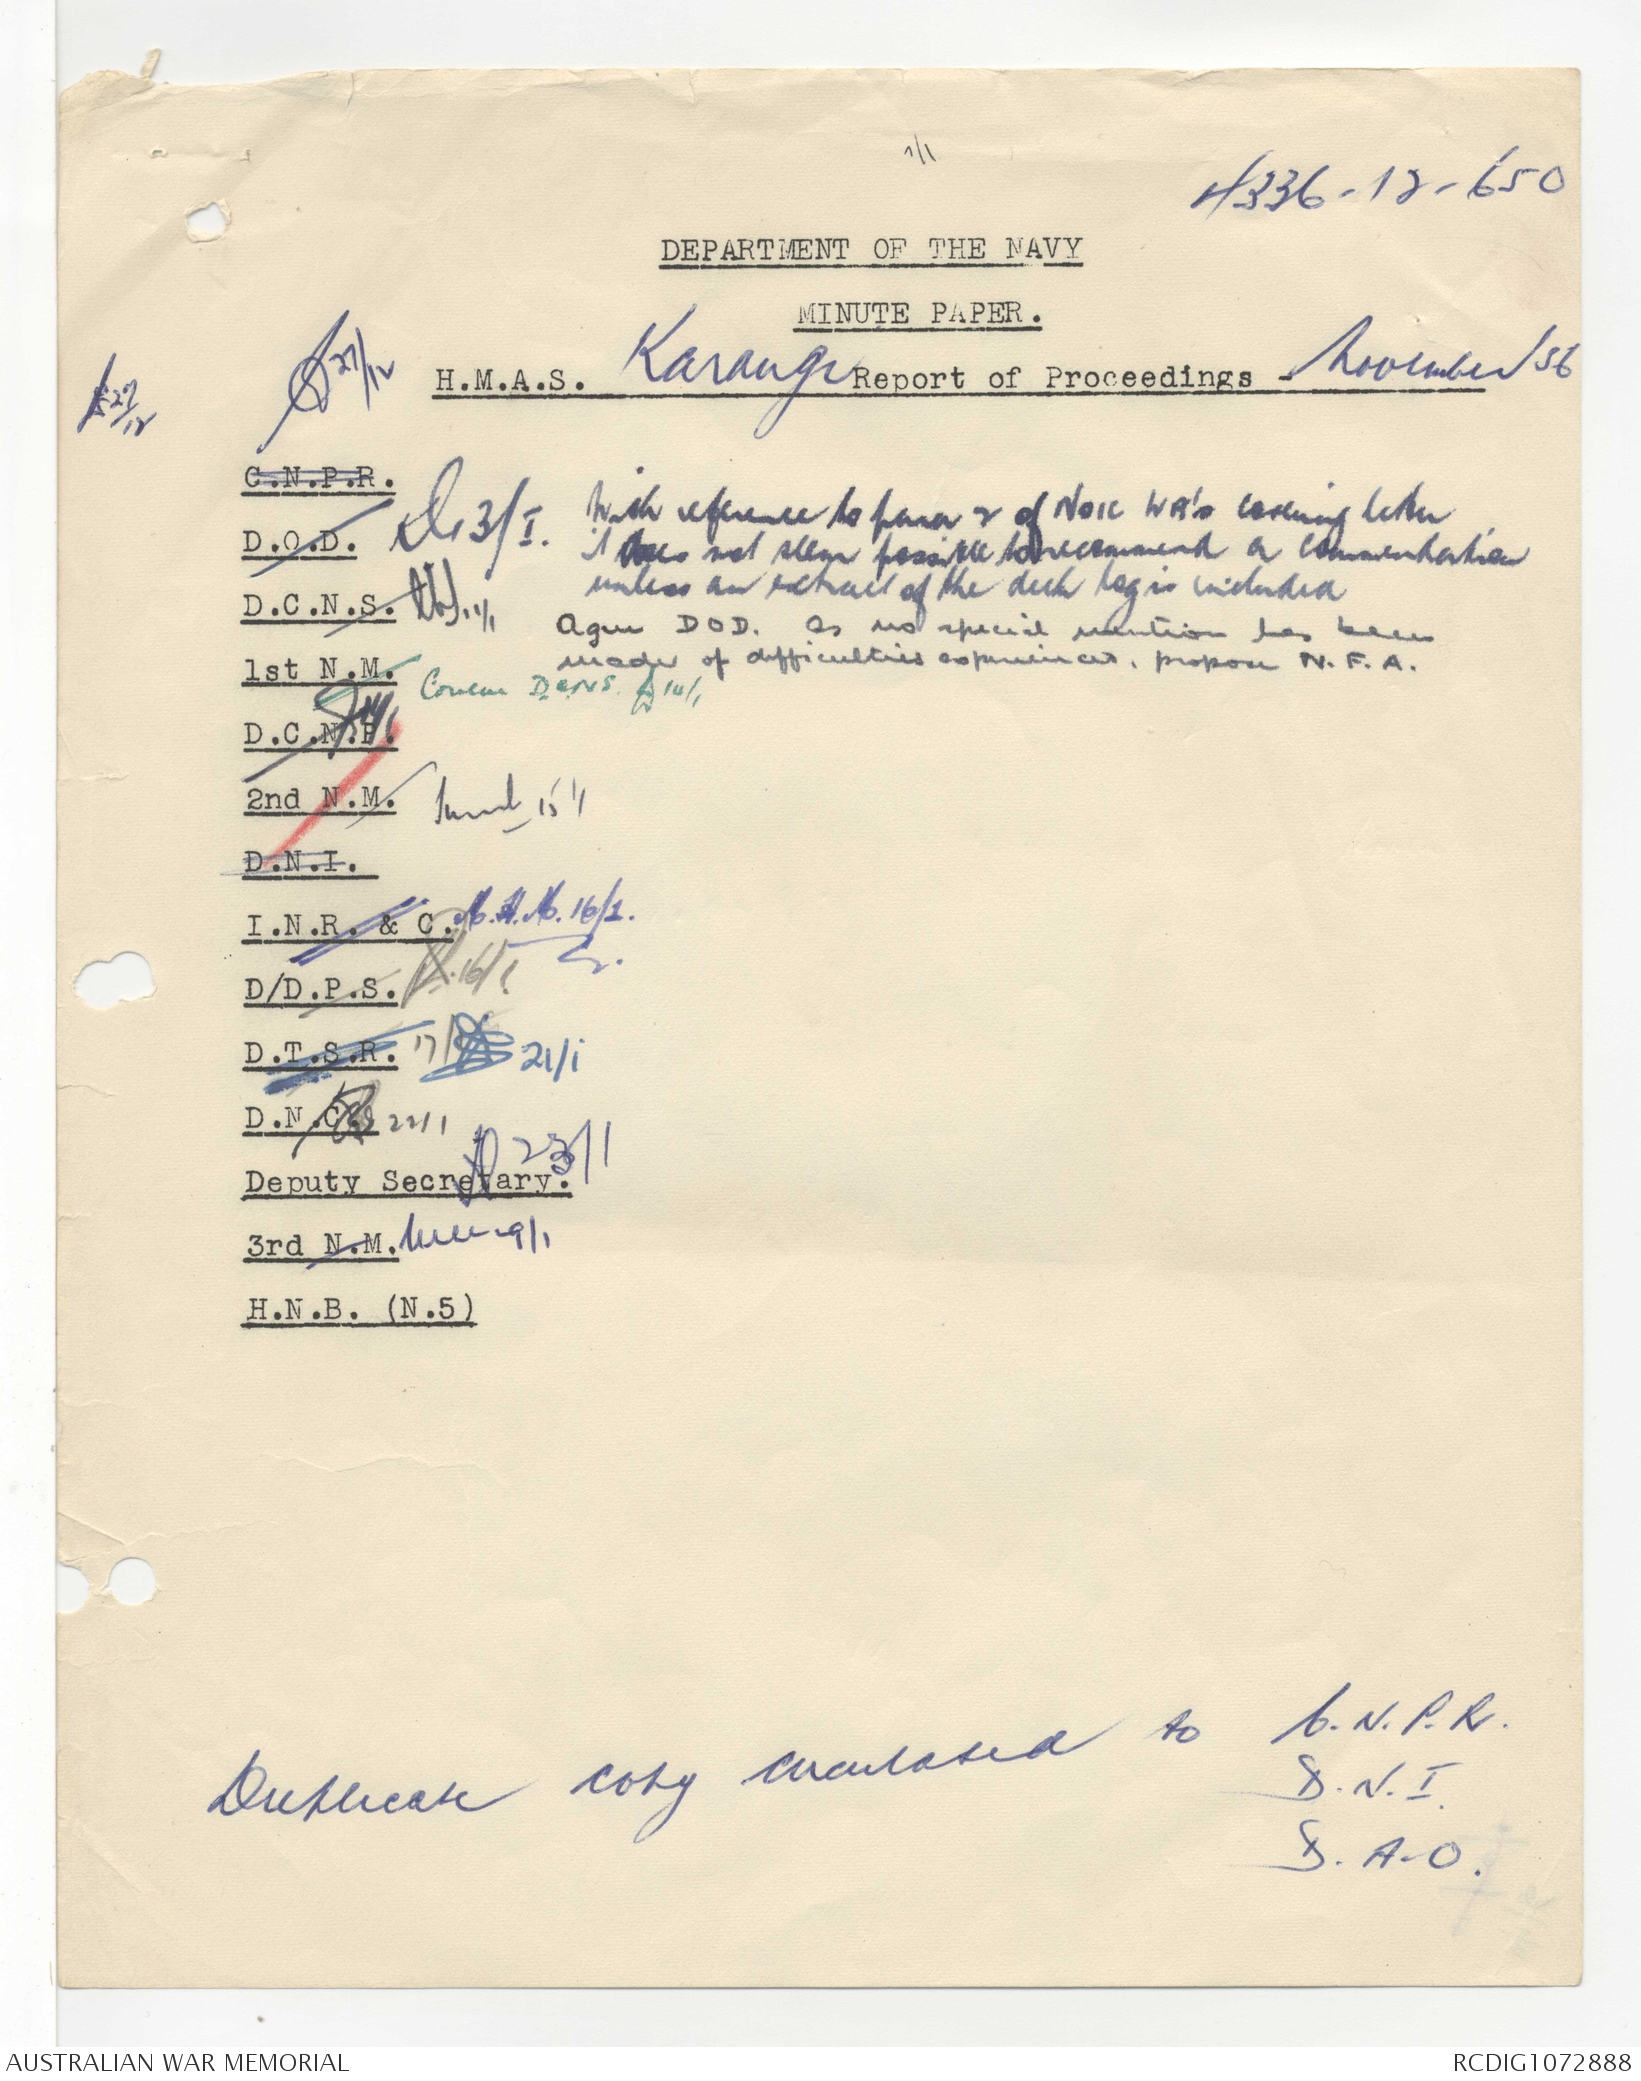 1/1
4336-12-650
DEPARTMENT OF THE NAVY
MINUTE PAPER.
27/12
27/12
H.M.A.S. Karangi Report of Proceedings - November '56
C.N.P.R.
D.O.D. 3/I.
With reference to para 2 of NOIC WA's covering letter
it does not seem possible to recommend a commendation
unless an extract of the deck log is included
D.C.N.S. 11/1
Agree DOD. As no special mention has been
made of difficulties experienced, propose N.F.A.
1st N.M.
Concur DCNS. 14/1
D.C.N.P. 14/1
2nd N.M. 15/1
D.N.I.
I.N.R. & C. 16/1.
D/D.P.S. 16/1
D.T.S.R. 17/1 21/1
D.N.C. 22/1
Deputy Secretary. 23/1
3rd N.M. 29/1
H.N.B. (N.5)
Duplicate copy circulated to C.N.P.R.
D.N.I.
D.A.O.
AUSTRALIAN WAR MEMORIAL
RCDIG1072888